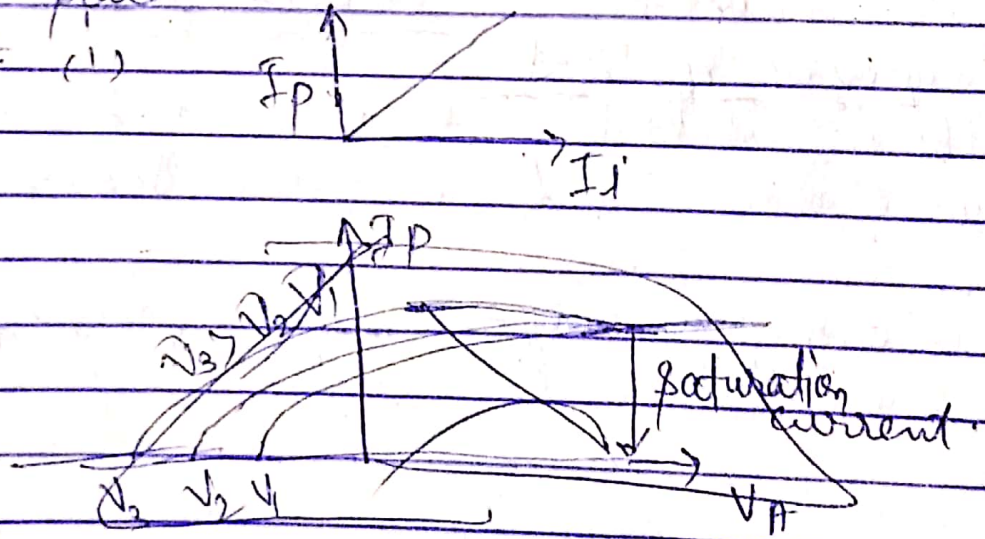 (i)
Ip
Ii
Ip
ν3 > ν2 ν1
saturation
current.
V3 V2 V1
VA